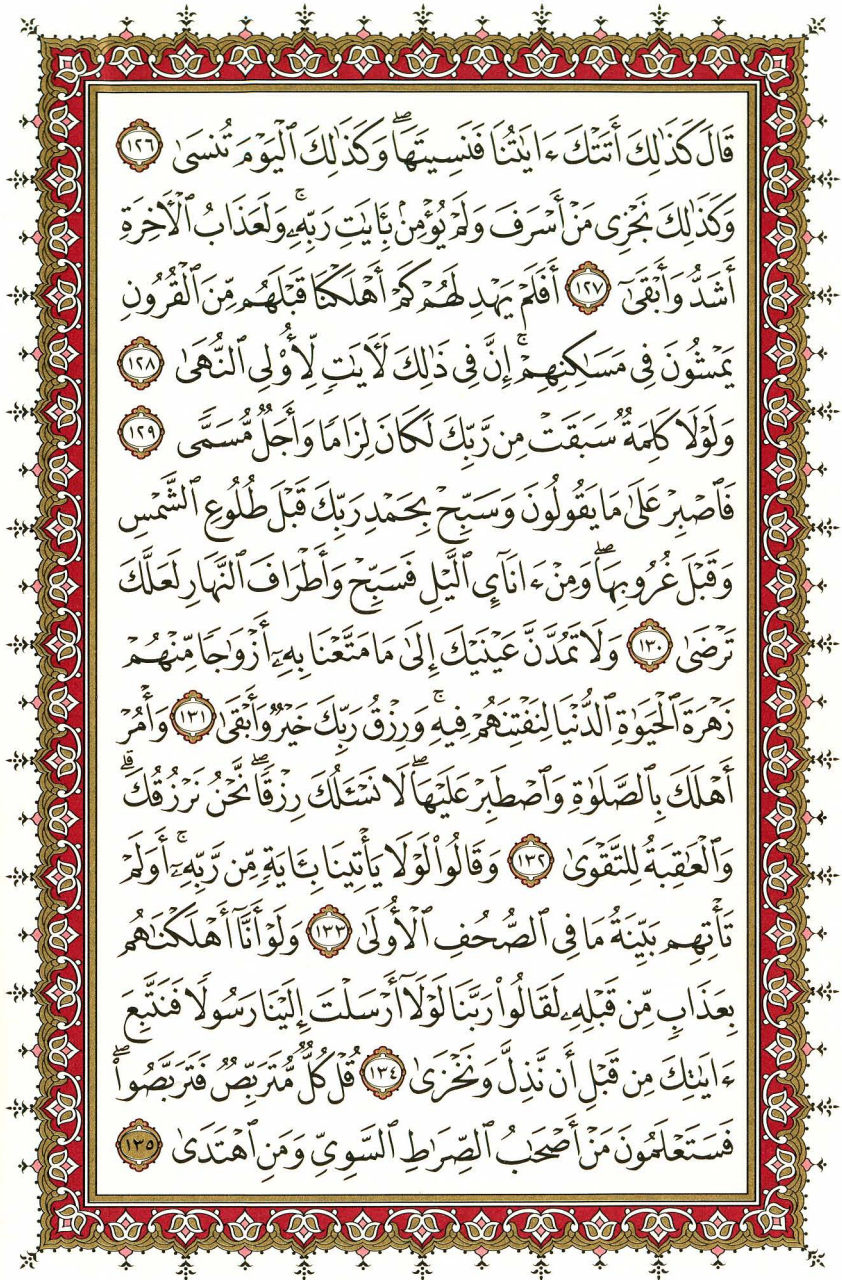 قَالَ كَذَٰلِكَ أَتَتْكَ ءَايَٰتُنَا فَنَسِيتَهَا ۖ وَكَذَٰلِكَ ٱلْيَوْمَ تُنسَىٰ ١٢٦
وَكَذَٰلِكَ نَجْزِى مَنْ أَسْرَفَ وَلَمْ يُؤْمِنۢ بِـَٔايَٰتِ رَبِّهِۦ ۚ وَلَعَذَابُ ٱلْـَٔاخِرَةِ
أَشَدُّ وَأَبْقَىٰٓ ١٢٧ أَفَلَمْ يَهْدِ لَهُمْ كَمْ أَهْلَكْنَا قَبْلَهُم مِّنَ ٱلْقُرُونِ
يَمْشُونَ فِى مَسَٰكِنِهِمْ ۗ إِنَّ فِى ذَٰلِكَ لَـَٔايَٰتٍ لِّأُو۟لِى ٱلنُّهَىٰ ١٢٨
وَلَوْلَا كَلِمَةٌ سَبَقَتْ مِن رَّبِّكَ لَكَانَ لِزَامًا وَأَجَلٌ مُّسَمًّى ١٢٩
فَٱصْبِرْ عَلَىٰ مَا يَقُولُونَ وَسَبِّحْ بِحَمْدِ رَبِّكَ قَبْلَ طُلُوعِ ٱلشَّمْسِ
وَقَبْلَ غُرُوبِهَا ۖ وَمِنْ ءَانَآئِ ٱلَّيْلِ فَسَبِّحْ وَأَطْرَافَ ٱلنَّهَارِ لَعَلَّكَ
تَرْضَىٰ ١٣٠ وَلَا تَمُدَّنَّ عَيْنَيْكَ إِلَىٰ مَا مَتَّعْنَا بِهِۦٓ أَزْوَٰجًا مِّنْهُمْ
زَهْرَةَ ٱلْحَيَوٰةِ ٱلدُّنْيَا لِنَفْتِنَهُمْ فِيهِ ۚ وَرِزْقُ رَبِّكَ خَيْرٌ وَأَبْقَىٰ ١٣١ وَأْمُرْ
أَهْلَكَ بِٱلصَّلَوٰةِ وَٱصْطَبِرْ عَلَيْهَا ۖ لَا نَسْـَٔلُكَ رِزْقًا ۖ نَّحْنُ نَرْزُقُكَ ۗ
وَٱلْعَٰقِبَةُ لِلتَّقْوَىٰ ١٣٢ وَقَالُوا۟ لَوْلَا يَأْتِينَا بِـَٔايَةٍ مِّن رَّبِّهِۦٓ ۚ أَوَلَمْ
تَأْتِهِم بَيِّنَةُ مَا فِى ٱلصُّحُفِ ٱلْأُولَىٰ ١٣٣ وَلَوْ أَنَّآ أَهْلَكْنَٰهُم
بِعَذَابٍ مِّن قَبْلِهِۦ لَقَالُوا۟ رَبَّنَا لَوْلَآ أَرْسَلْتَ إِلَيْنَا رَسُولًا فَنَتَّبِعَ
ءَايَٰتِكَ مِن قَبْلِ أَن نَّذِلَّ وَنَخْزَىٰ ١٣٤ قُلْ كُلٌّ مُّتَرَبِّصٌ فَتَرَبَّصُوا۟ ۖ
فَسَتَعْلَمُونَ مَنْ أَصْحَٰبُ ٱلصِّرَٰطِ ٱلسَّوِىِّ وَمَنِ ٱهْتَدَىٰ ١٣٥